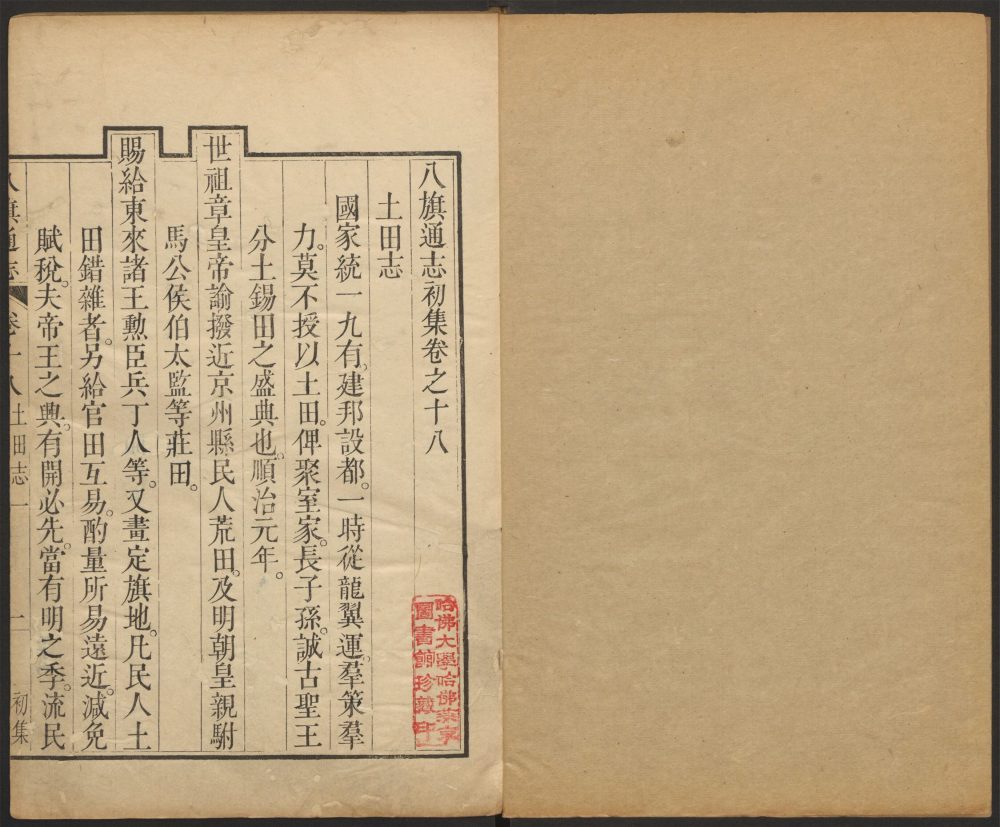 八旗通志初集卷之十八
土田志
國家統一九有。建邦設都。一時從龍翼運。羣策羣
力。莫不授以土田。俾聚室家。長子孫。誠古聖王
分土錫田之盛典也。順治元年。
世祖章皇帝諭撥近京州縣民人荒田。及明朝皇親駙
馬公侯伯太監等莊田。
賜給東來諸王勲臣兵丁人等。又畫定旗地。凡民人土
田錯雜者。另給官田互易。酌量所易遠近。減免
賦稅。夫帝王之興。有開必先。當有明之季。流民
八旗通志 卷十八 土田志一 一 初集
哈佛大學哈佛燕京
圖書館珍藏印